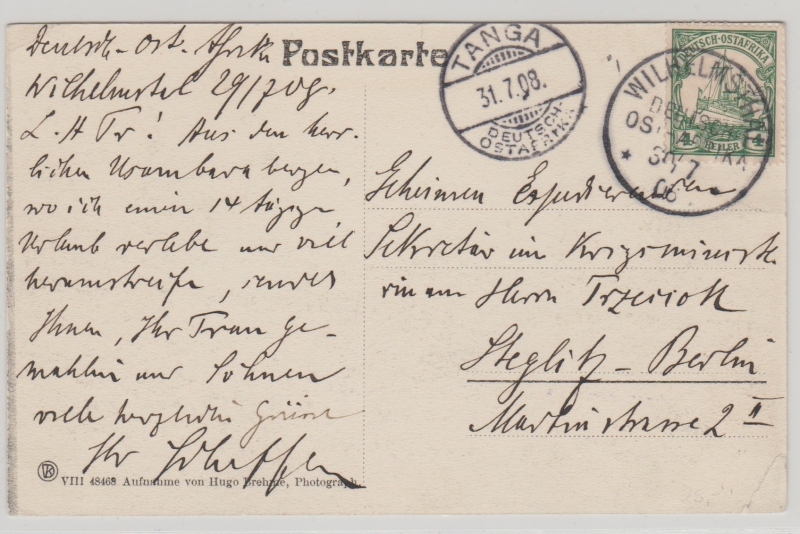 Postkarte
Deutsch-Ost-Afrika
Wilhelmstal 29/7 08.
L. H. Tr! Aus den herr-
lichen Usambarabergen,
wo ich einen 14 tägigen
Urlaub verlebe und viel
herumstreife, sendet
Ihnen, Ihr Frau Ge-
mahlin und Söhnen
viele herzliche Grüsse
Ihr
TANGA
31.7.08.
DEUTSCH-
OSTAFRIKA
WILHELMSTAL
DEUTSCH
OSTAFRIKA
DEUTSCH-OSTAFRIKA
4 HELLER 4
Geheimen Expedierenden
Sekretär im Krigsminist
rium Herrn
Steglitz-Berlin
Martinstrasse 2 II
VIII 48468 Aufnahme von Hugo Brehme, Photograph.